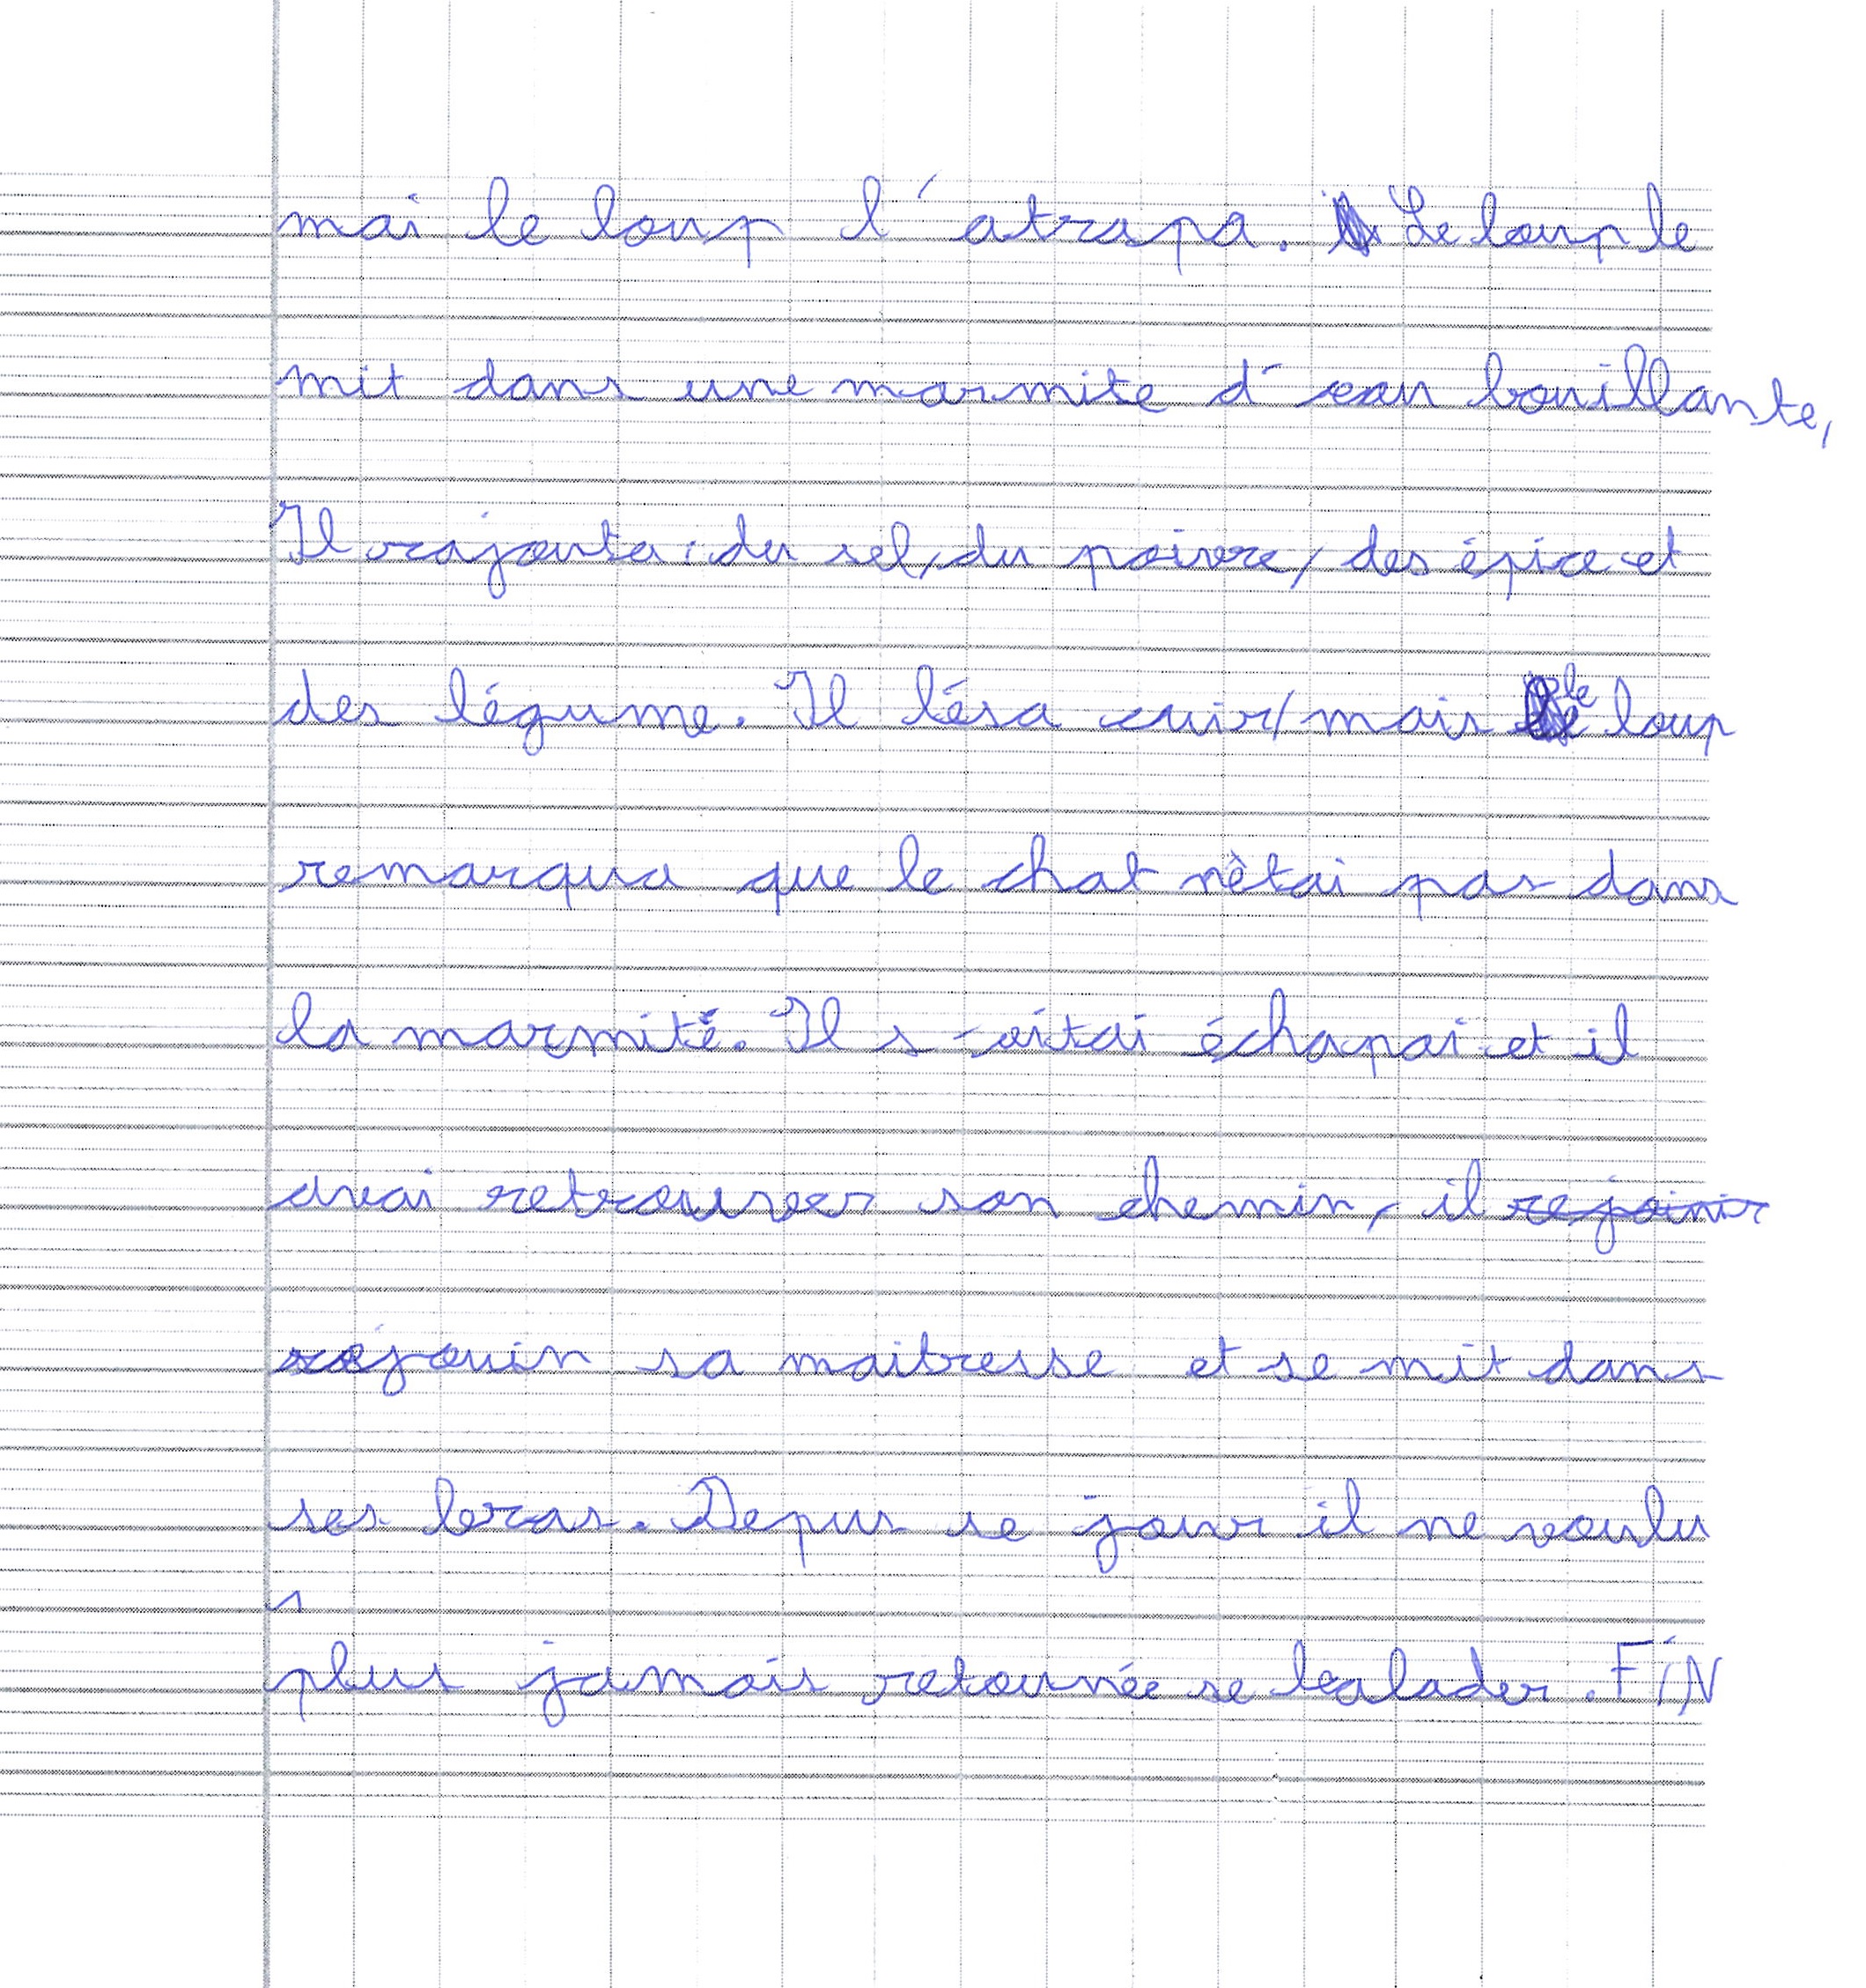 mai le loup l'atrapa. Le loup le
mit dans une marmite d'eau bouillante,
Il rajouta : du sel, du poivre, des épice et
des légume. Il lésa cuir, mais le loup
remarqua que le chat n'êtai pas dans
la marmite. Il s'aitai échapai et il
avai retrouver son chemin, il rejoinir
rejouin sa maitresse et se mit dans
ses bras. Depus se jour il ne voulu
plus jamais retournée se balader. FIN